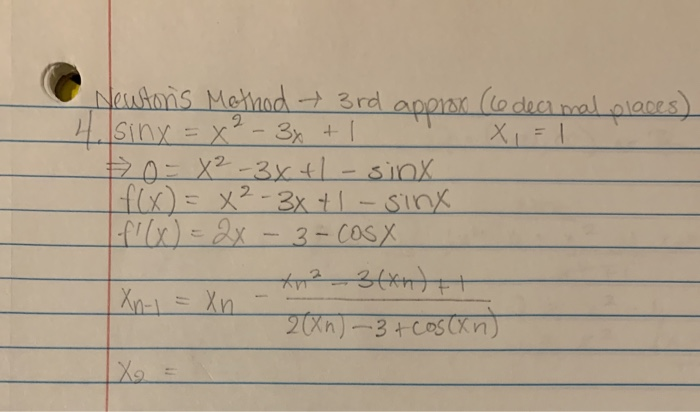 Newton's Method → 3rd approx (6 decimal places)
4. sinx = x² - 3x + 1 x₁ = 1
⇒ 0 = x² - 3x + 1 - sinx
f(x) = x² - 3x + 1 - sinx
f'(x) = 2x - 3 - cosx
xₙ₋₁ = xₙ - (xₙ² - 3(xₙ) + 1) / (2(xₙ) - 3 + cos(xₙ))
x₂ =